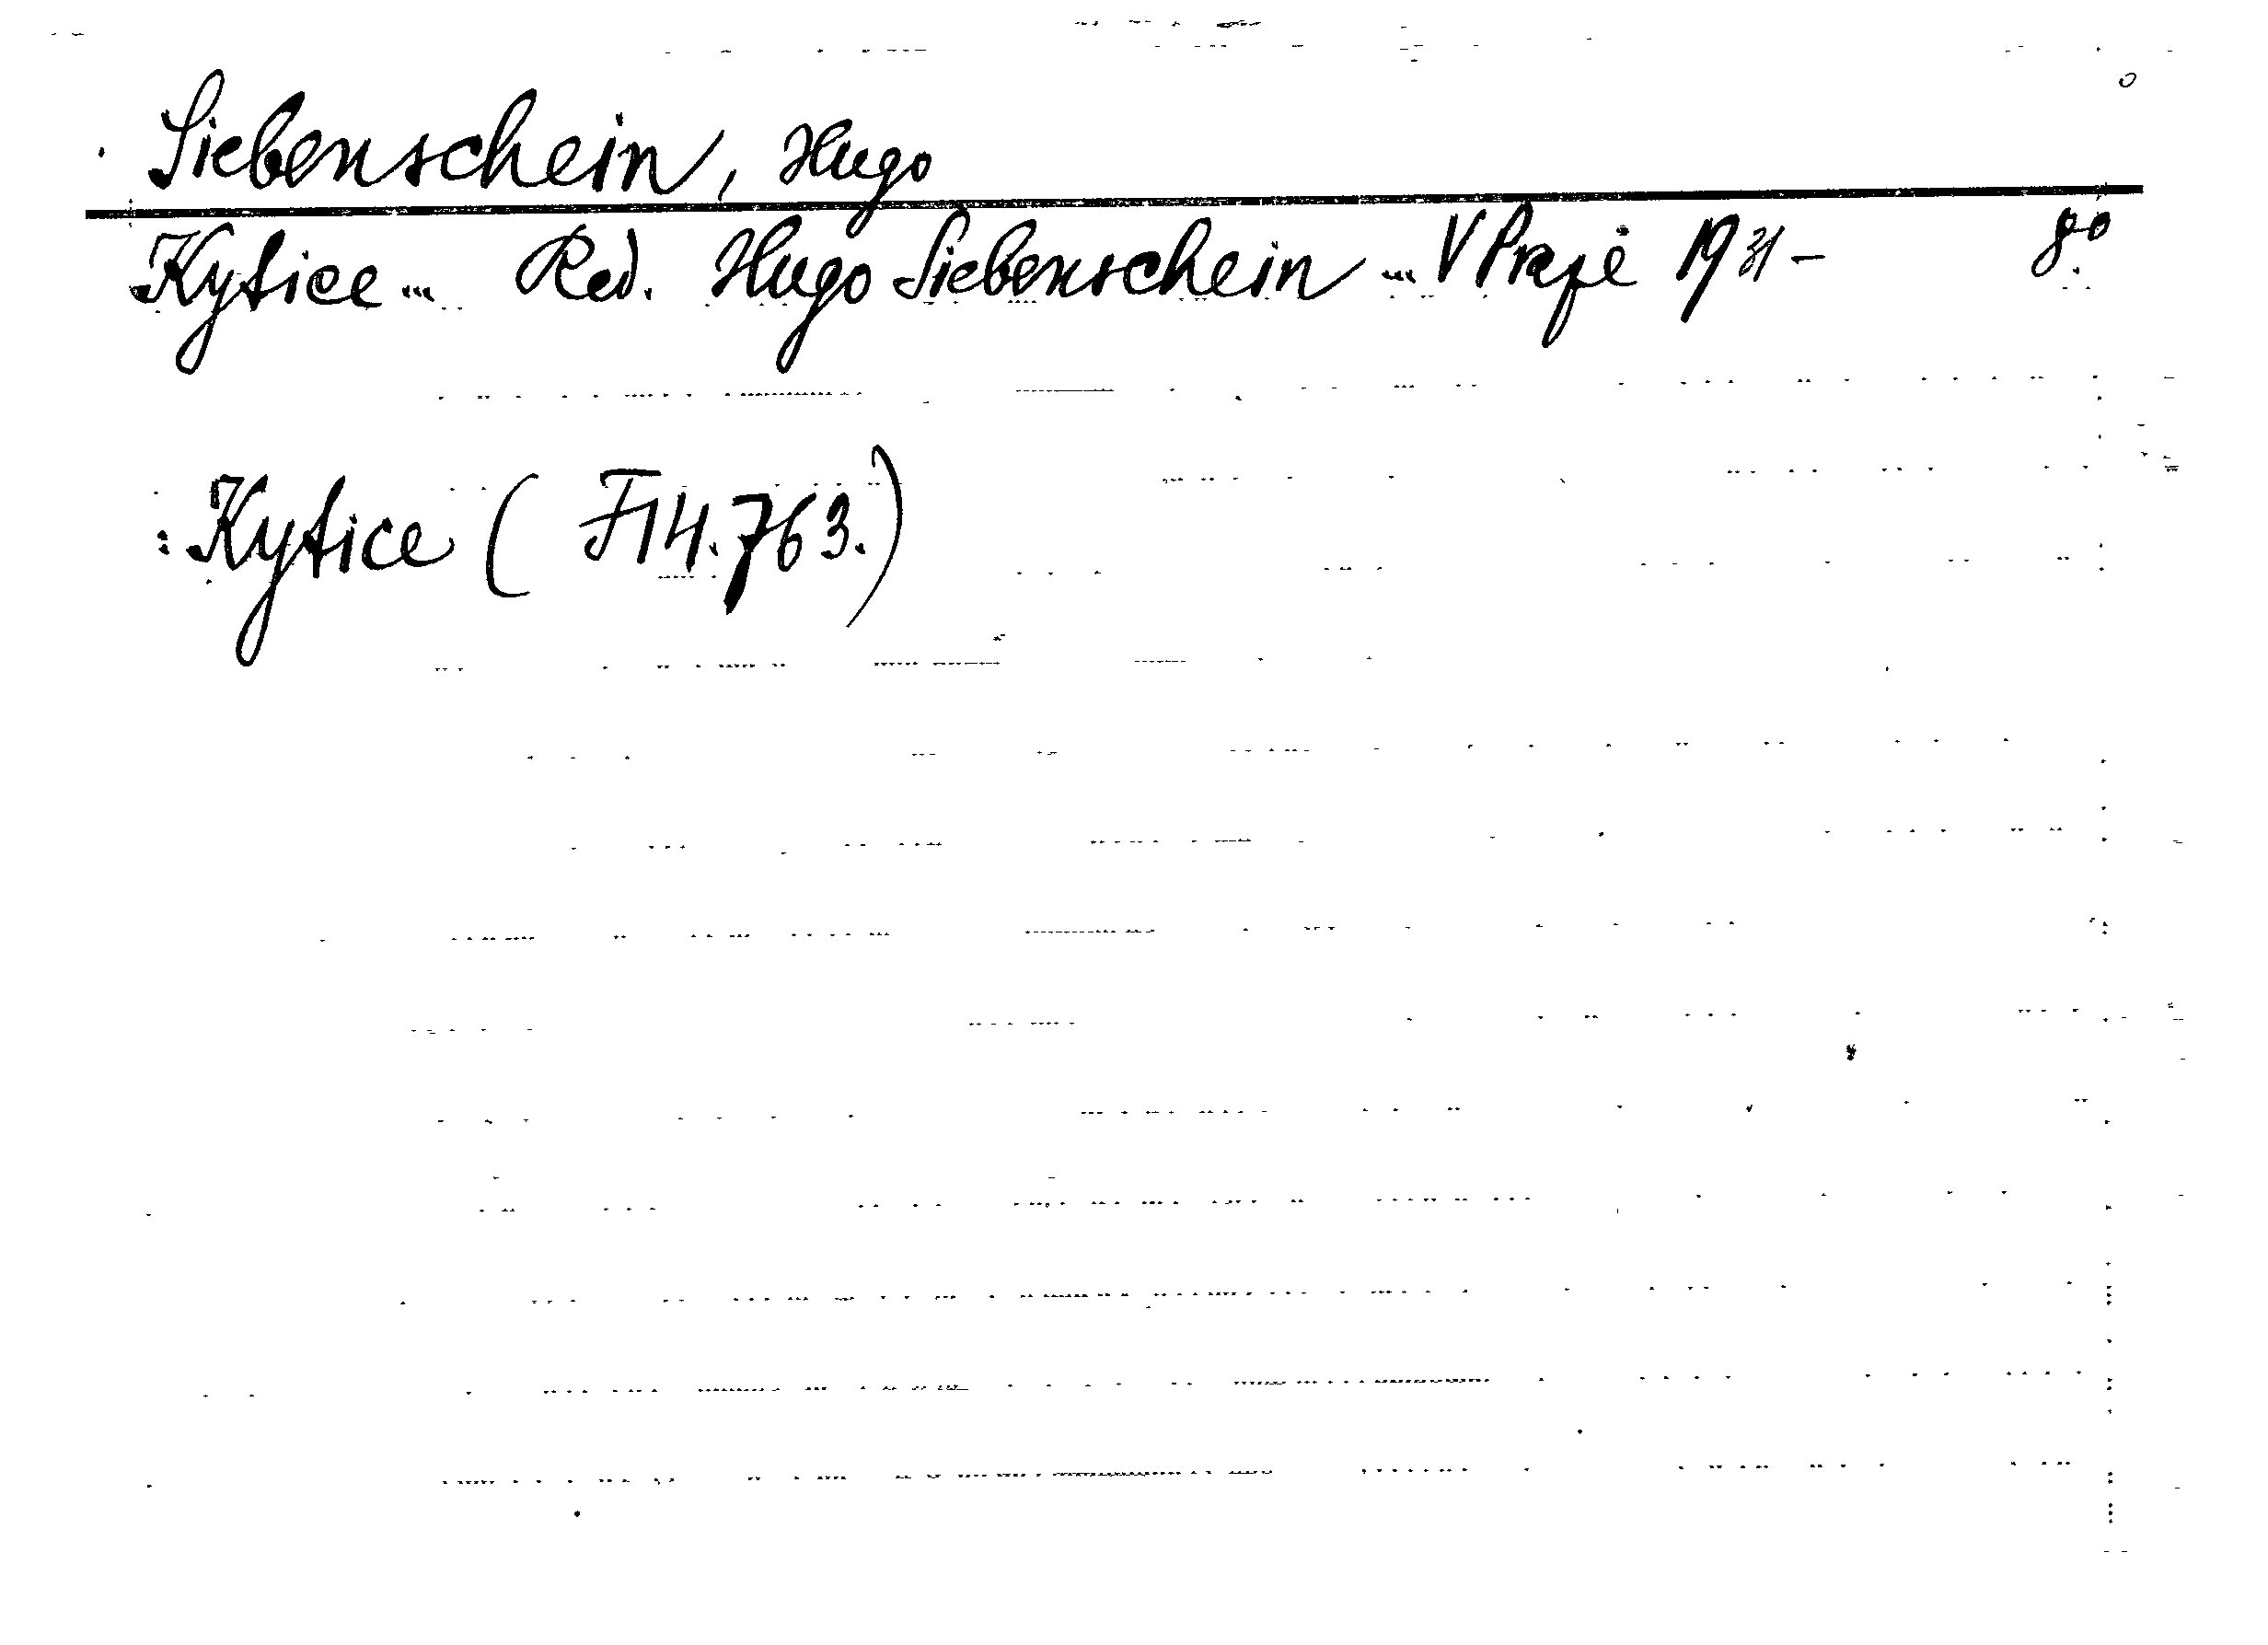 Siebenschein, Hugo
Kytice... Red. Hugo Siebenschein ... V Praze 1931- 8°.
: Kytice ( F14.763.)